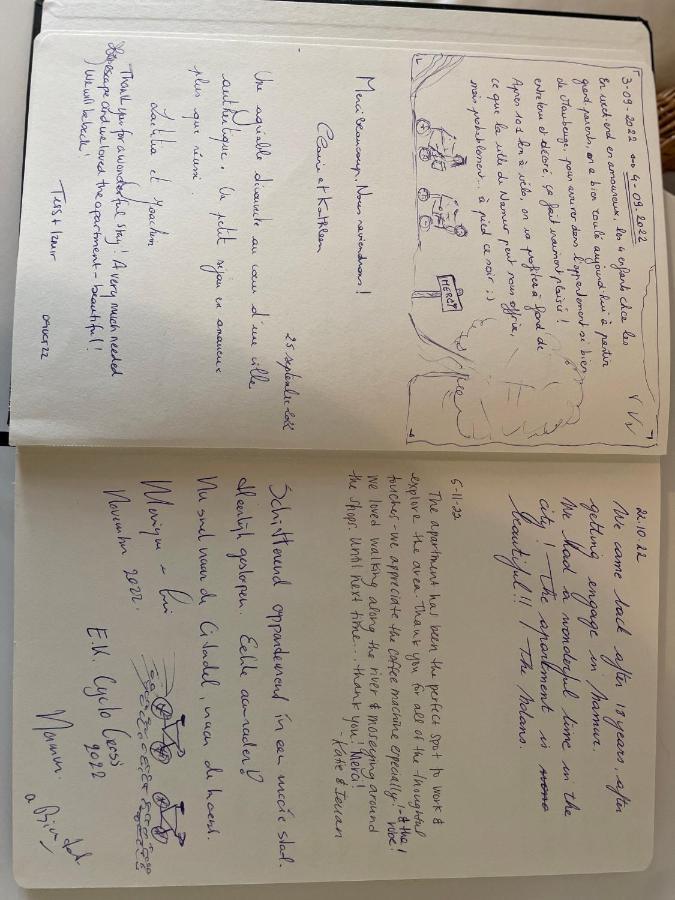 3-09.2022 4-09.2022
En week-end en amoureux, les 4 enfants chez les
grands parents, on a bien roulé aujourd'hui à partir
de Maubeuge pour arriver dans l'appartement si bien
entretenu et décoré, ça fait vraiment plaisir !
Après 102 km à vélo, on va profiter à fond de
ce que la ville de Namur peut nous offrir,
mais probablement... à pied ce soir :)
MERCI
Merci beaucoup. Nous reviendrons !
Claire et Kathleen
25 septembre 2022
Une agréable découverte au coeur d'une ville
authentique. Un petit séjour en amoureux
plus que réussi
Laetitia et Joachim
Thank you for a wonderful stay! A very much needed
escape and we loved the apartment - beautiful!
We will be back!
Tess +
22.10.22
We came back after 18 years, after
getting engage in Namur.
We had a wonderful time in the
city! The apartment is
beautiful!! The Adans.
5-11-22
The apartment has been the perfect spot to work &
explore the area. Thank you for all of the thoughtful
touches - we appreciate the coffee machine especially! - & the vibe!
We loved walking along the river & moseying around
the shops. Until next time... thank you! Merci!
- Katie &
Schitterend appartement in een mooie stad.
Heerlijk geslapen. Echte aanrader!
Nu snel naar de Citadel, naar de koers.
Monique
November 2022.
E.K. Cyclo Cross
2022
Namur.